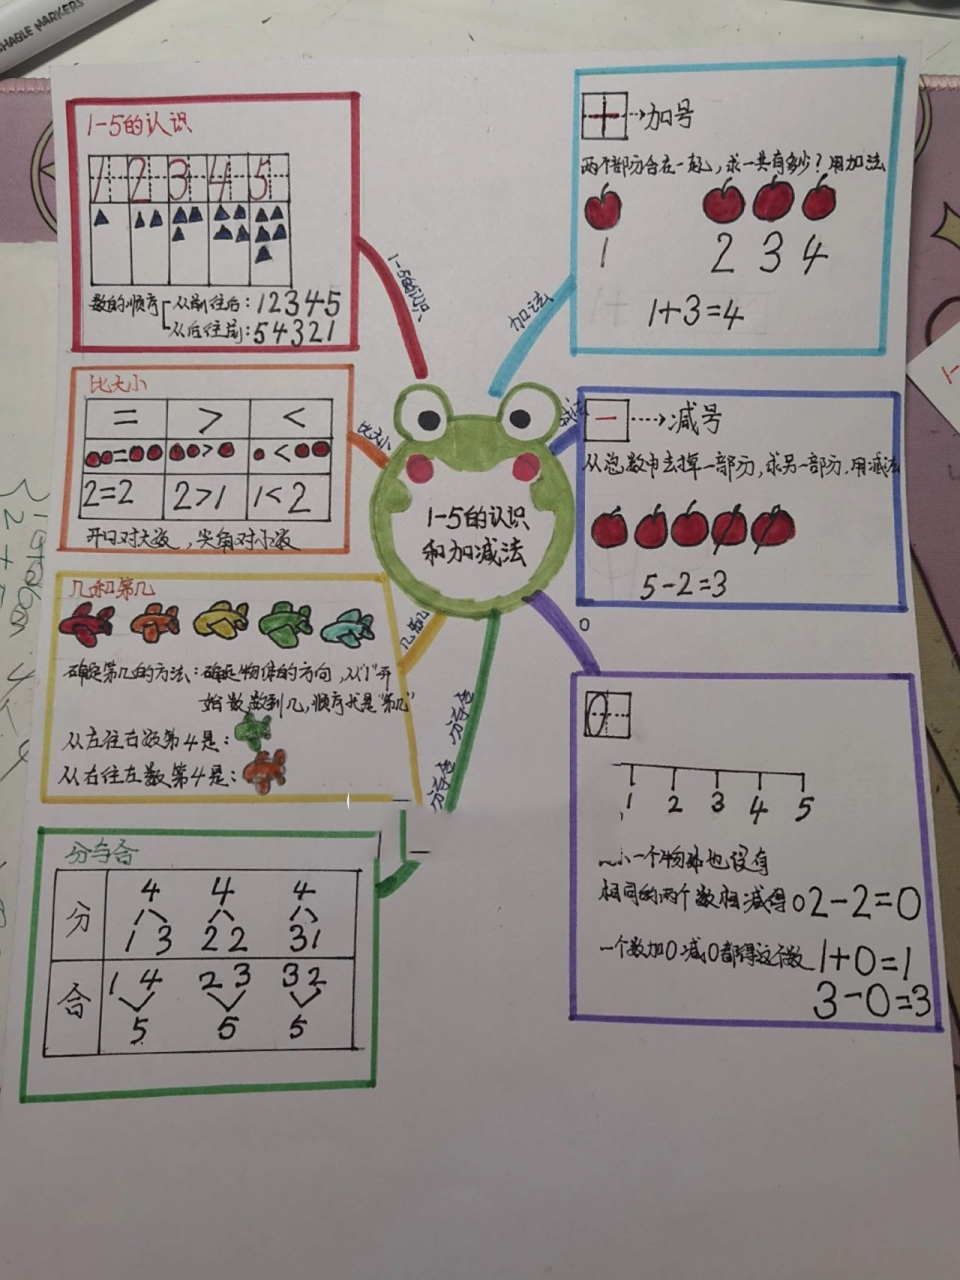 1-5的认识
1 2 3 4 5
数的顺序
从前往后：12345
从后往前：54321
1-5的认识
比大小
= > <
= > <
2=2 2>1 1<2
开口对大数，尖角对小数
比大小
几和第几
确定第几的方法：确定物体的方向，从“1”开
始数，数到几，顺序就是“第几”
从左往右数第4是：
从右往左数第4是：
几和第几
分与合
分与合
分与合
分
4 4 4
1 3 2 2 3 1
合
1 4 2 3 3 2
5 5 5
1-5的认识
和加减法
加法
+ → 加号
两个部分合在一起，求一共有多少？用加法
1 2 3 4
1+3=4
减法
- → 减号
从总数中去掉一部分，求另一部分，用减法
5-2=3
0
0
1 2 3 4 5
一个物体也没有
相同的两个数相减得0 2-2=0
一个数加0减0都得这个数 1+0=1
3-0=3
HABLE MARKERS